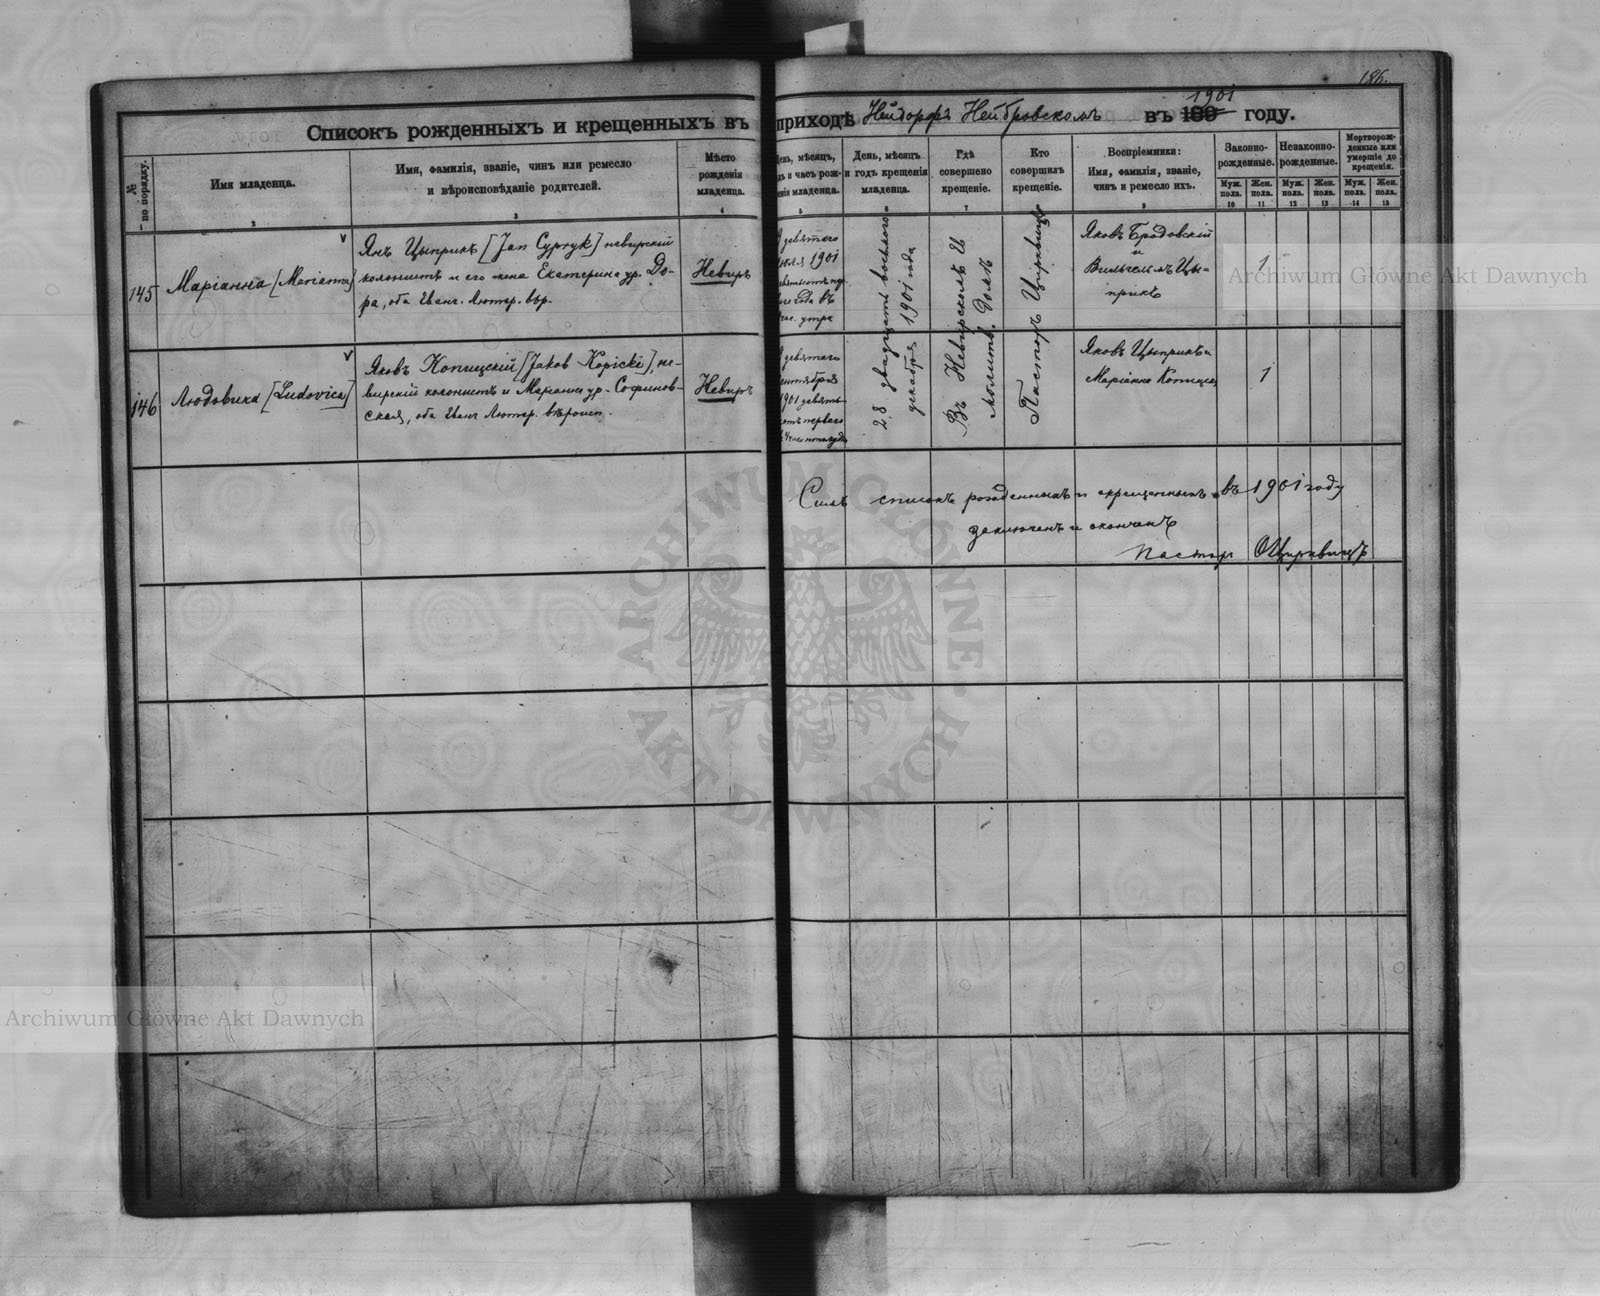 186.
Списокъ рожденныхъ и крещенныхъ въ приходѣ Нейдорфъ Нейбровскомъ въ 1901 году.
№ по порядку.
Имя младенца.
Имя, фамилія, званіе, чинъ или ремесло
и вѣроисповѣданіе родителей.
Мѣсто
рожденія
младенца.
День, мѣсяцъ,
и часъ рож-
денія младенца.
День, мѣсяцъ
и годъ крещенія
младенца.
Гдѣ
совершено
крещеніе.
Кто
совершилъ
крещеніе.
Воспріемники:
Имя, фамилія, званіе,
чинъ и ремесло ихъ.
Законно-
рожденные.
Незаконно-
рожденные.
Мертворож-
денные или
умершіе до
крещенія.
Муж. пола.
Жен. пола.
Муж. пола.
Жен. пола.
Муж. пола.
Жен. пола.
2 3 4 5 7 9 10 11 12 13 14 15
145
Маріанна [Marianna]
Янъ Цыприкъ [Jan Cypryk] невирскій
колонистъ и его жена Екатерина ур. До-
ра, оба Еванг. Лютер. вѣр.
Невиръ
девятаго
1901
года въ
час. утра
28 двадцать восьмого
декабря 1901 года
Въ Невирскомъ
молитв. Домѣ
Пасторъ Цирквицъ
Яковъ Бродовскій
и
Вильгельмъ Цы-
прикъ
1
146
Людовика [Ludovica]
Яковъ Копицкій [Jakob Kopicki], не-
вирскій колонистъ и Маріанна ур. Софинов-
ская, оба Еванг Лютер. вѣроисп.
Невиръ
девятаго
сентября
1901 девять-
сотъ перваго
Яковъ Цыприкъ и
Маріанна Копицка
1
Симъ списокъ рожденныхъ и крещенныхъ въ 1901 году
заключенъ и оконченъ
Пасторъ Цирквицъ
Archiwum Główne Akt Dawnych
Archiwum Główne Akt Dawnych
ARCHIWUM GŁÓWNE AKT DAWNYCH